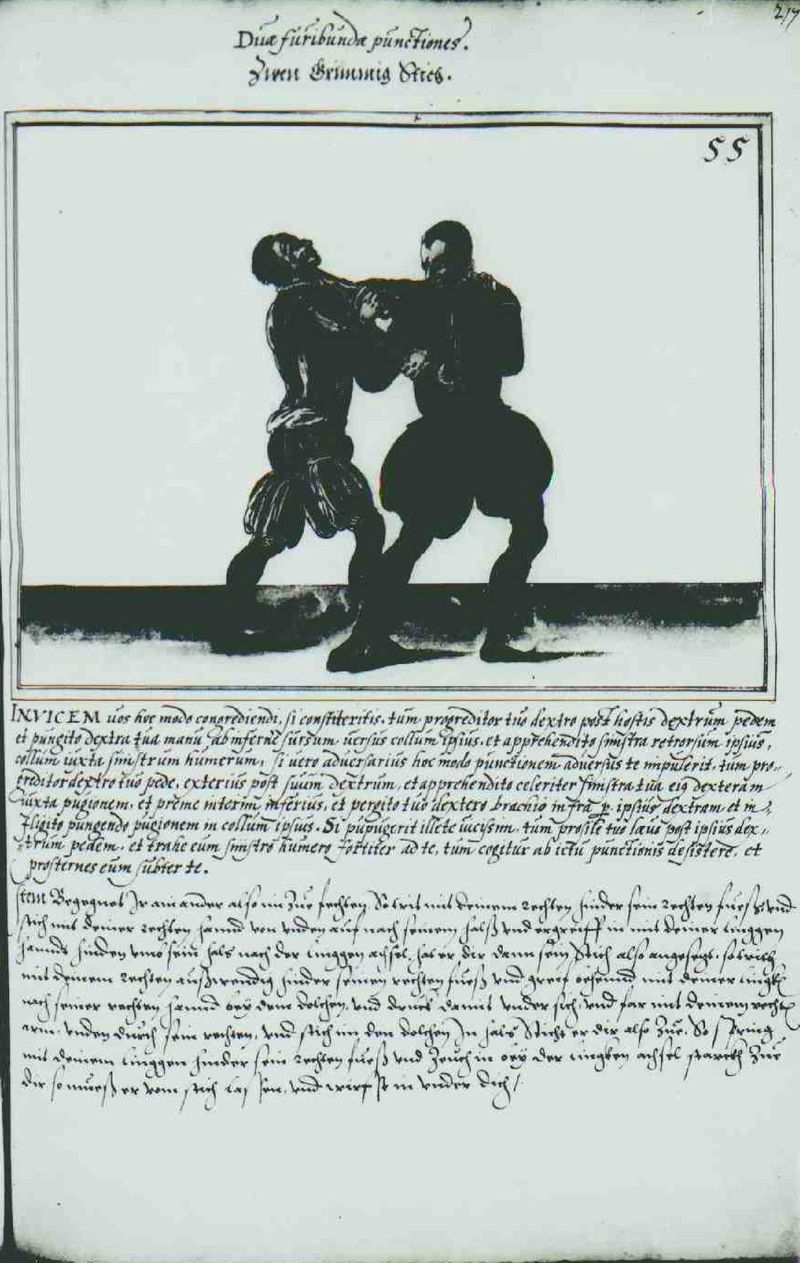 217
Duæ furibundæ punctiones.
Zwen Grimmig Stich.
55
INVICEM uos hoc modo congrediendi, si constiteritis, tum progreditor tuo dextro post hostis dextrum pedem
et pungito dextra tua manu ab inferne sursum uersus collum ipsius, et apprehendito sinistra retrorsum ipsius,
collum iuxta sinistrum humerum, si uero aduersarius hoc modo punctionem aduersus te impulerit, tum pro-
greditor dextro tuo pede, exterius post suum dextrum, et apprehendito celeriter sinistra tua eius dexteram
iuxta pugionem, et preme interim inferius, et pergito tuo dextero brachio infra ipsius dextram et in-
fligito pungendo pugionem in collum ipsius. Si pupugerit ille te uicissim, tum prosile tuo læuo post ipsius dex-
trum pedem, et trahe eum sinistro humero fortiter ad te, tum cogitur ab ictu punctionis desistere, et
prosternes eum subter te.
Item Begegnet Ir ain ander also im Zue fechten, So trit mit deinem rechten hinder sein rechten fuess vnd
stich mit deiner rechten hannd von vnden auf nach seinem halss vnd ergreiff in mit deiner linggen
hannd hinden vmb sein hals nach der linggen achsel, hat er dir dann sein Stich also angesezt, so trit
mit deinem rechten ausswendig hinder seinen rechten fuess vnd greif behennd mit deiner linggen
nach seiner rechten hannd bey dem dolchen, vnd druck damit vnder sich, vnd far mit deinem rechten
arm vnden durch sein rechten, vnd stich im den dolchen In hals Sticht er dir also Zue, So spring
mit deinem linggen hinder sein rechten fuess vnd Zeuch in bey der lingken achsel starckh Zue
dir so muess er vom stich lassen, vnd wirfst in vnder dich /